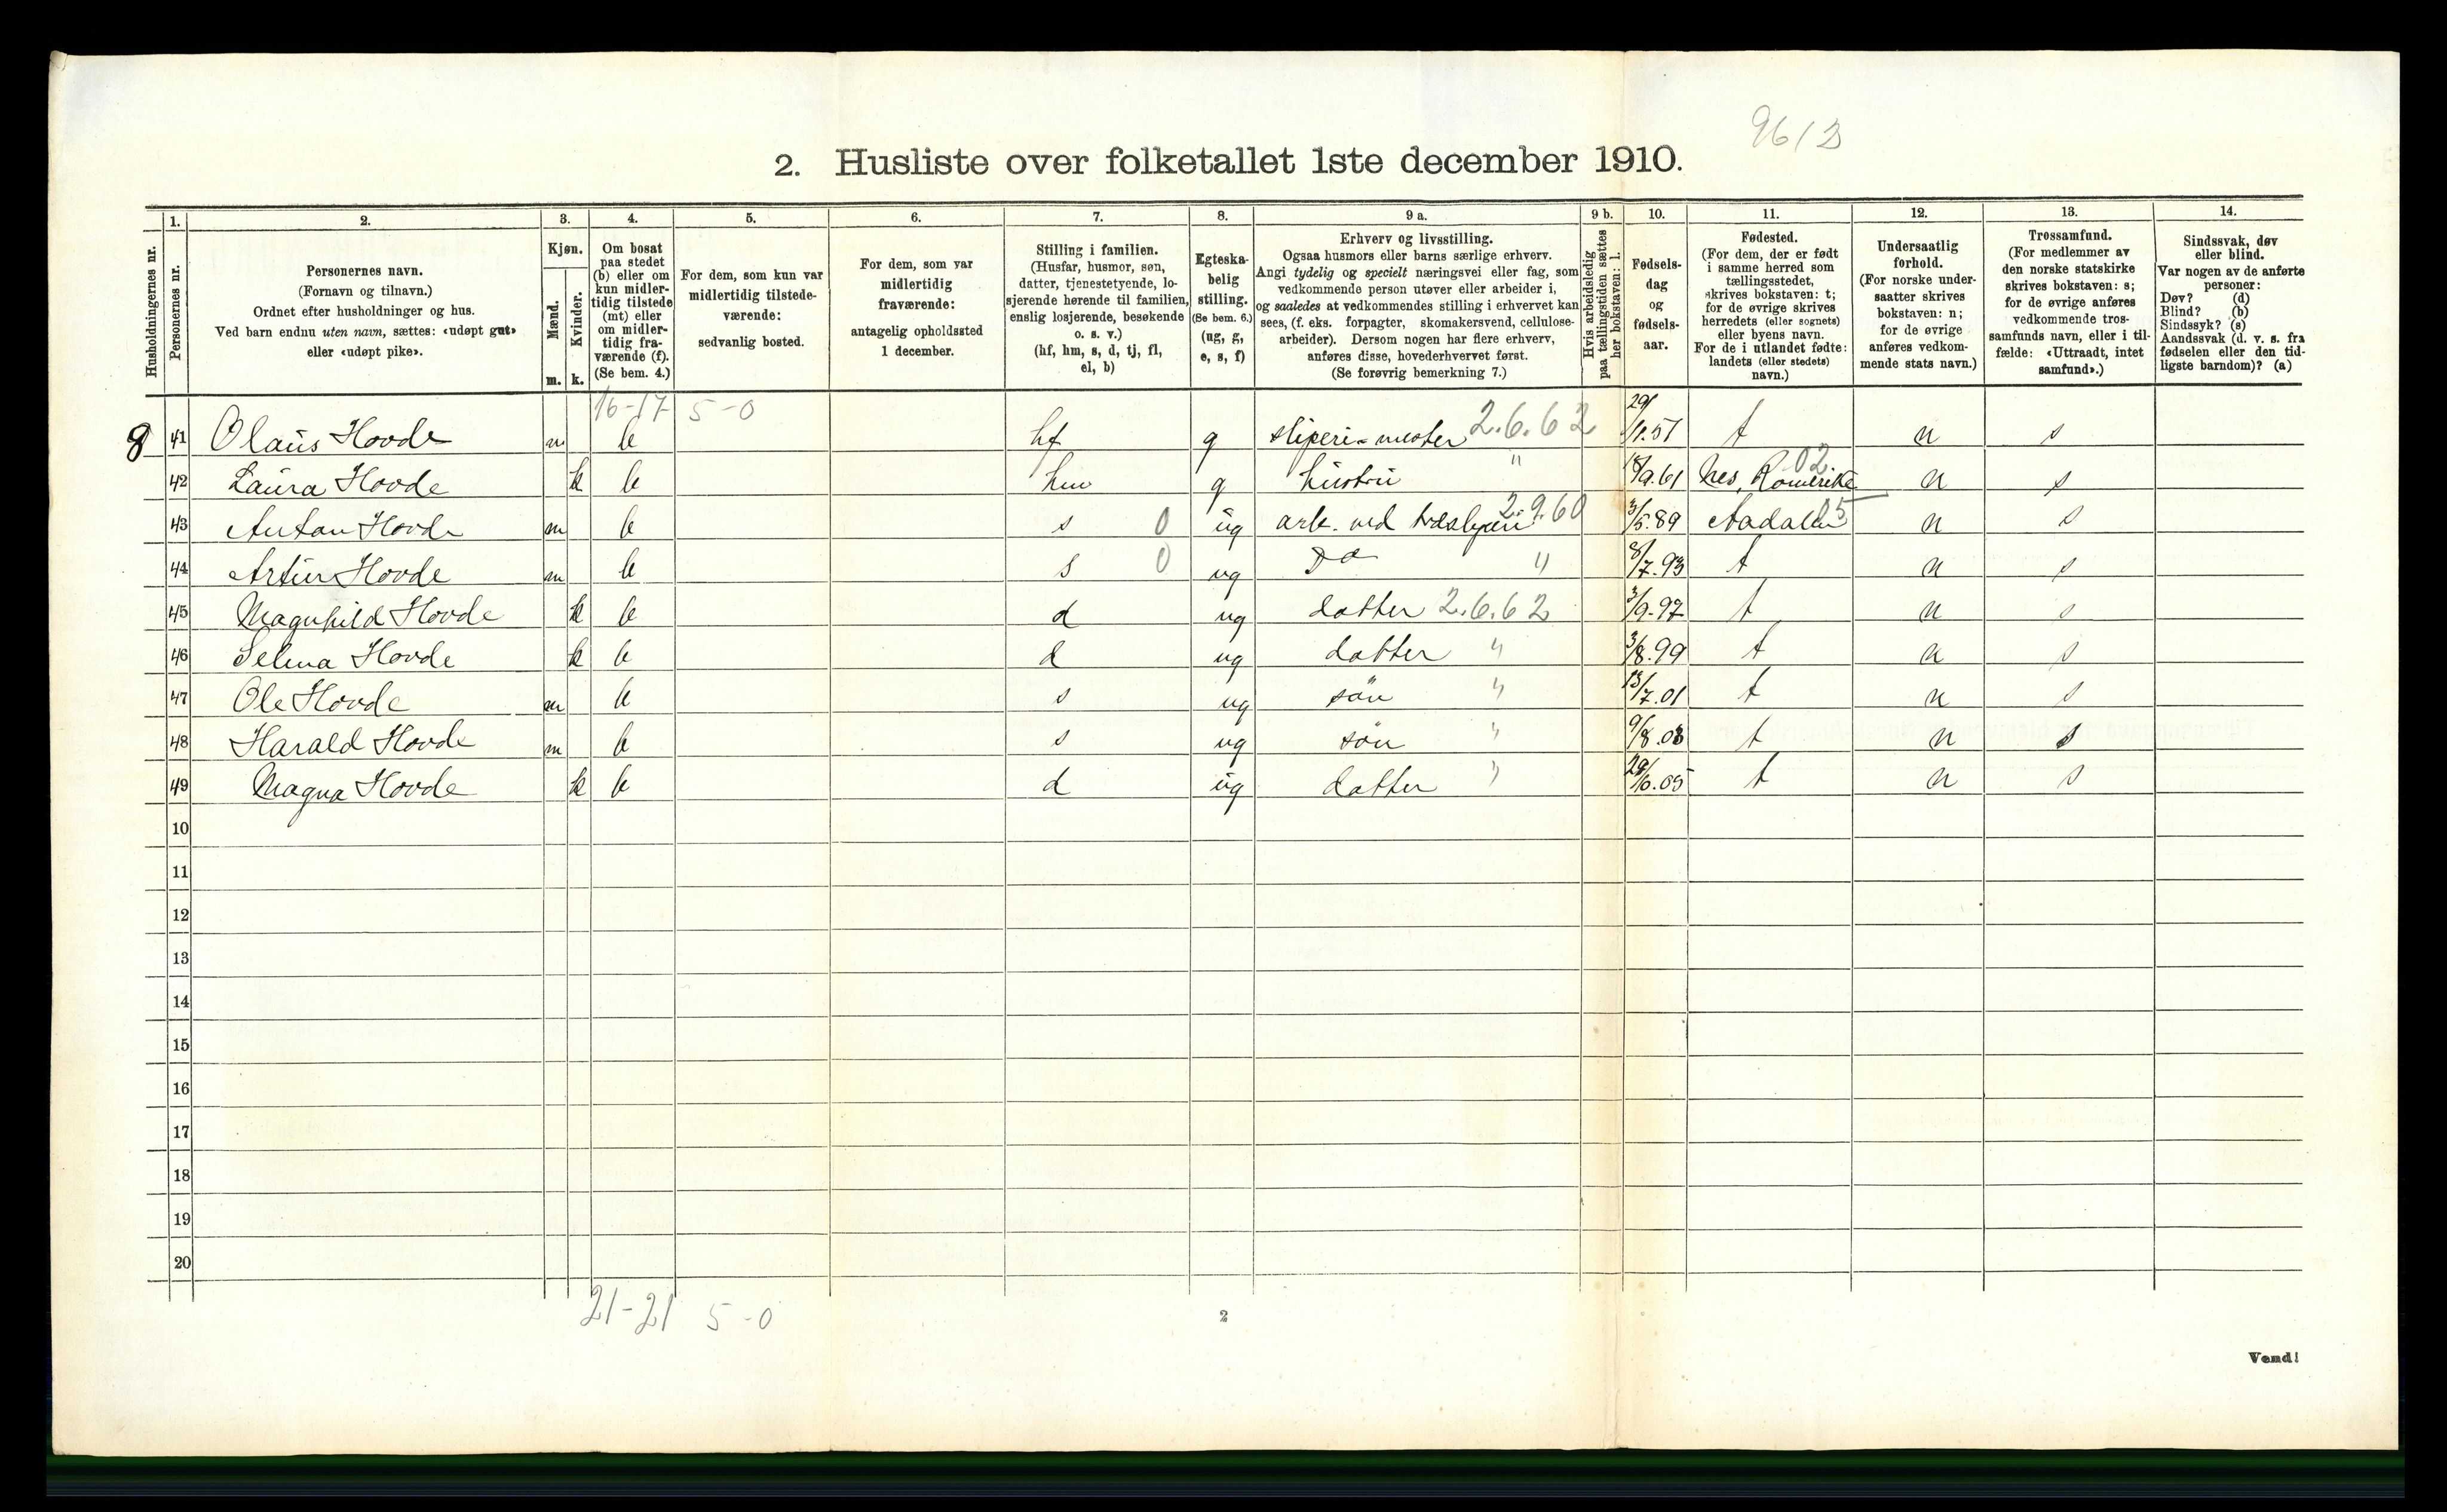 9612
2. Husliste over folketallet 1ste december 1910.
1. 2. 3. 4. 5. 6. 7. 8. 9 a. 9 b. 10. 11. 12. 13. 14.
Husholdningernes nr.
Personernes nr.
Personernes navn.
(Fornavn og tilnavn.)
Ordnet efter husholdninger og hus.
Ved barn endnu uten navn, sættes: «udøpt gut»
eller «udøpt pike».
Kjøn.
Mænd.
Kvinder.
m. k.
Om bosat
paa stedet
(b) eller om
kun midler-
tidig tilstede
(mt) eller
om midler-
tidig fra-
værende (f).
(Se bem. 4.)
For dem, som kun var
midlertidig tilstede-
værende:
sedvanlig bosted.
For dem, som var
midlertidig
fraværende:
antagelig opholdssted
1 december.
Stilling i familien.
(Husfar, husmor, søn,
datter, tjenestetyende, lo-
sjerende hørende til familien,
enslig losjerende, besøkende
o. s. v.)
(hf, hm, s, d, tj, fl,
el, b)
Egteska-
belig
stilling.
(Se bem. 6.)
(ug, g,
e, s, f)
Erhverv og livsstilling.
Ogsaa husmors eller barns særlige erhverv.
Angi tydelig og specielt næringsvei eller fag, som
vedkommende person utøver eller arbeider i,
og saaledes at vedkommendes stilling i erhvervet kan
sees, (f. eks. forpagter, skomakersvend, cellulose-
arbeider). Dersom nogen har flere erhverv,
anføres disse, hovederhvervet først.
(Se forøvrig bemerkning 7.)
Hvis arbeidsledig
paa tællingstiden sættes
her bokstaven: l.
Fødsels-
dag
og
fødsels-
aar.
Fødested.
(For dem, der er født
i samme herred som
tællingsstedet,
skrives bokstaven: t;
for de øvrige skrives
herredets (eller sognets)
eller byens navn.
For de i utlandet fødte:
landets (eller stedets)
navn.)
Undersaatlig
forhold.
(For norske under-
saatter skrives
bokstaven: n;
for de øvrige
anføres vedkom-
mende stats navn.)
Trossamfund.
(For medlemmer av
den norske statskirke
skrives bokstaven: s;
for de øvrige anføres
vedkommende tros-
samfunds navn, eller i til-
fælde: «Uttraadt, intet
samfund».)
Sindssvak, døv
eller blind.
Var nogen av de anførte
personer:
Døv? (d)
Blind? (b)
Sindssyk? (s)
Aandssvak (d. v. s. fra
fødselen eller den tid-
ligste barndom)? (a)
16-17 5-0
8 41 Olaus Hovde m b hf g sliperi-mester 2.6.62 29/1.57 t n s
42 Laura Hovde k b hm g hustru " 18/9.61 Nes, Romerike 02 n s
43 Anton Hovde m b s 0 ug arb. ved træsliperi 2.9.60 3/5.89 Aadalen 05 n s
44 Artur Hovde m b s 0 ug Do " 8/7.93 t n s
45 Magnhild Hovde k b d ug datter 2.6.62 3/9.97 t n s
46 Selma Hovde k b d ug datter " 3/8.99 t n s
47 Ole Hovde m b s ug søn " 13/7.01 t n s
48 Harald Hovde m b s ug søn " 9/8.03 t n s
49 Magna Hovde k b d ug datter " 29/6.05 t n s
10
11
12
13
14
15
16
17
18
19
20
21-21 5-0
2
Vend!